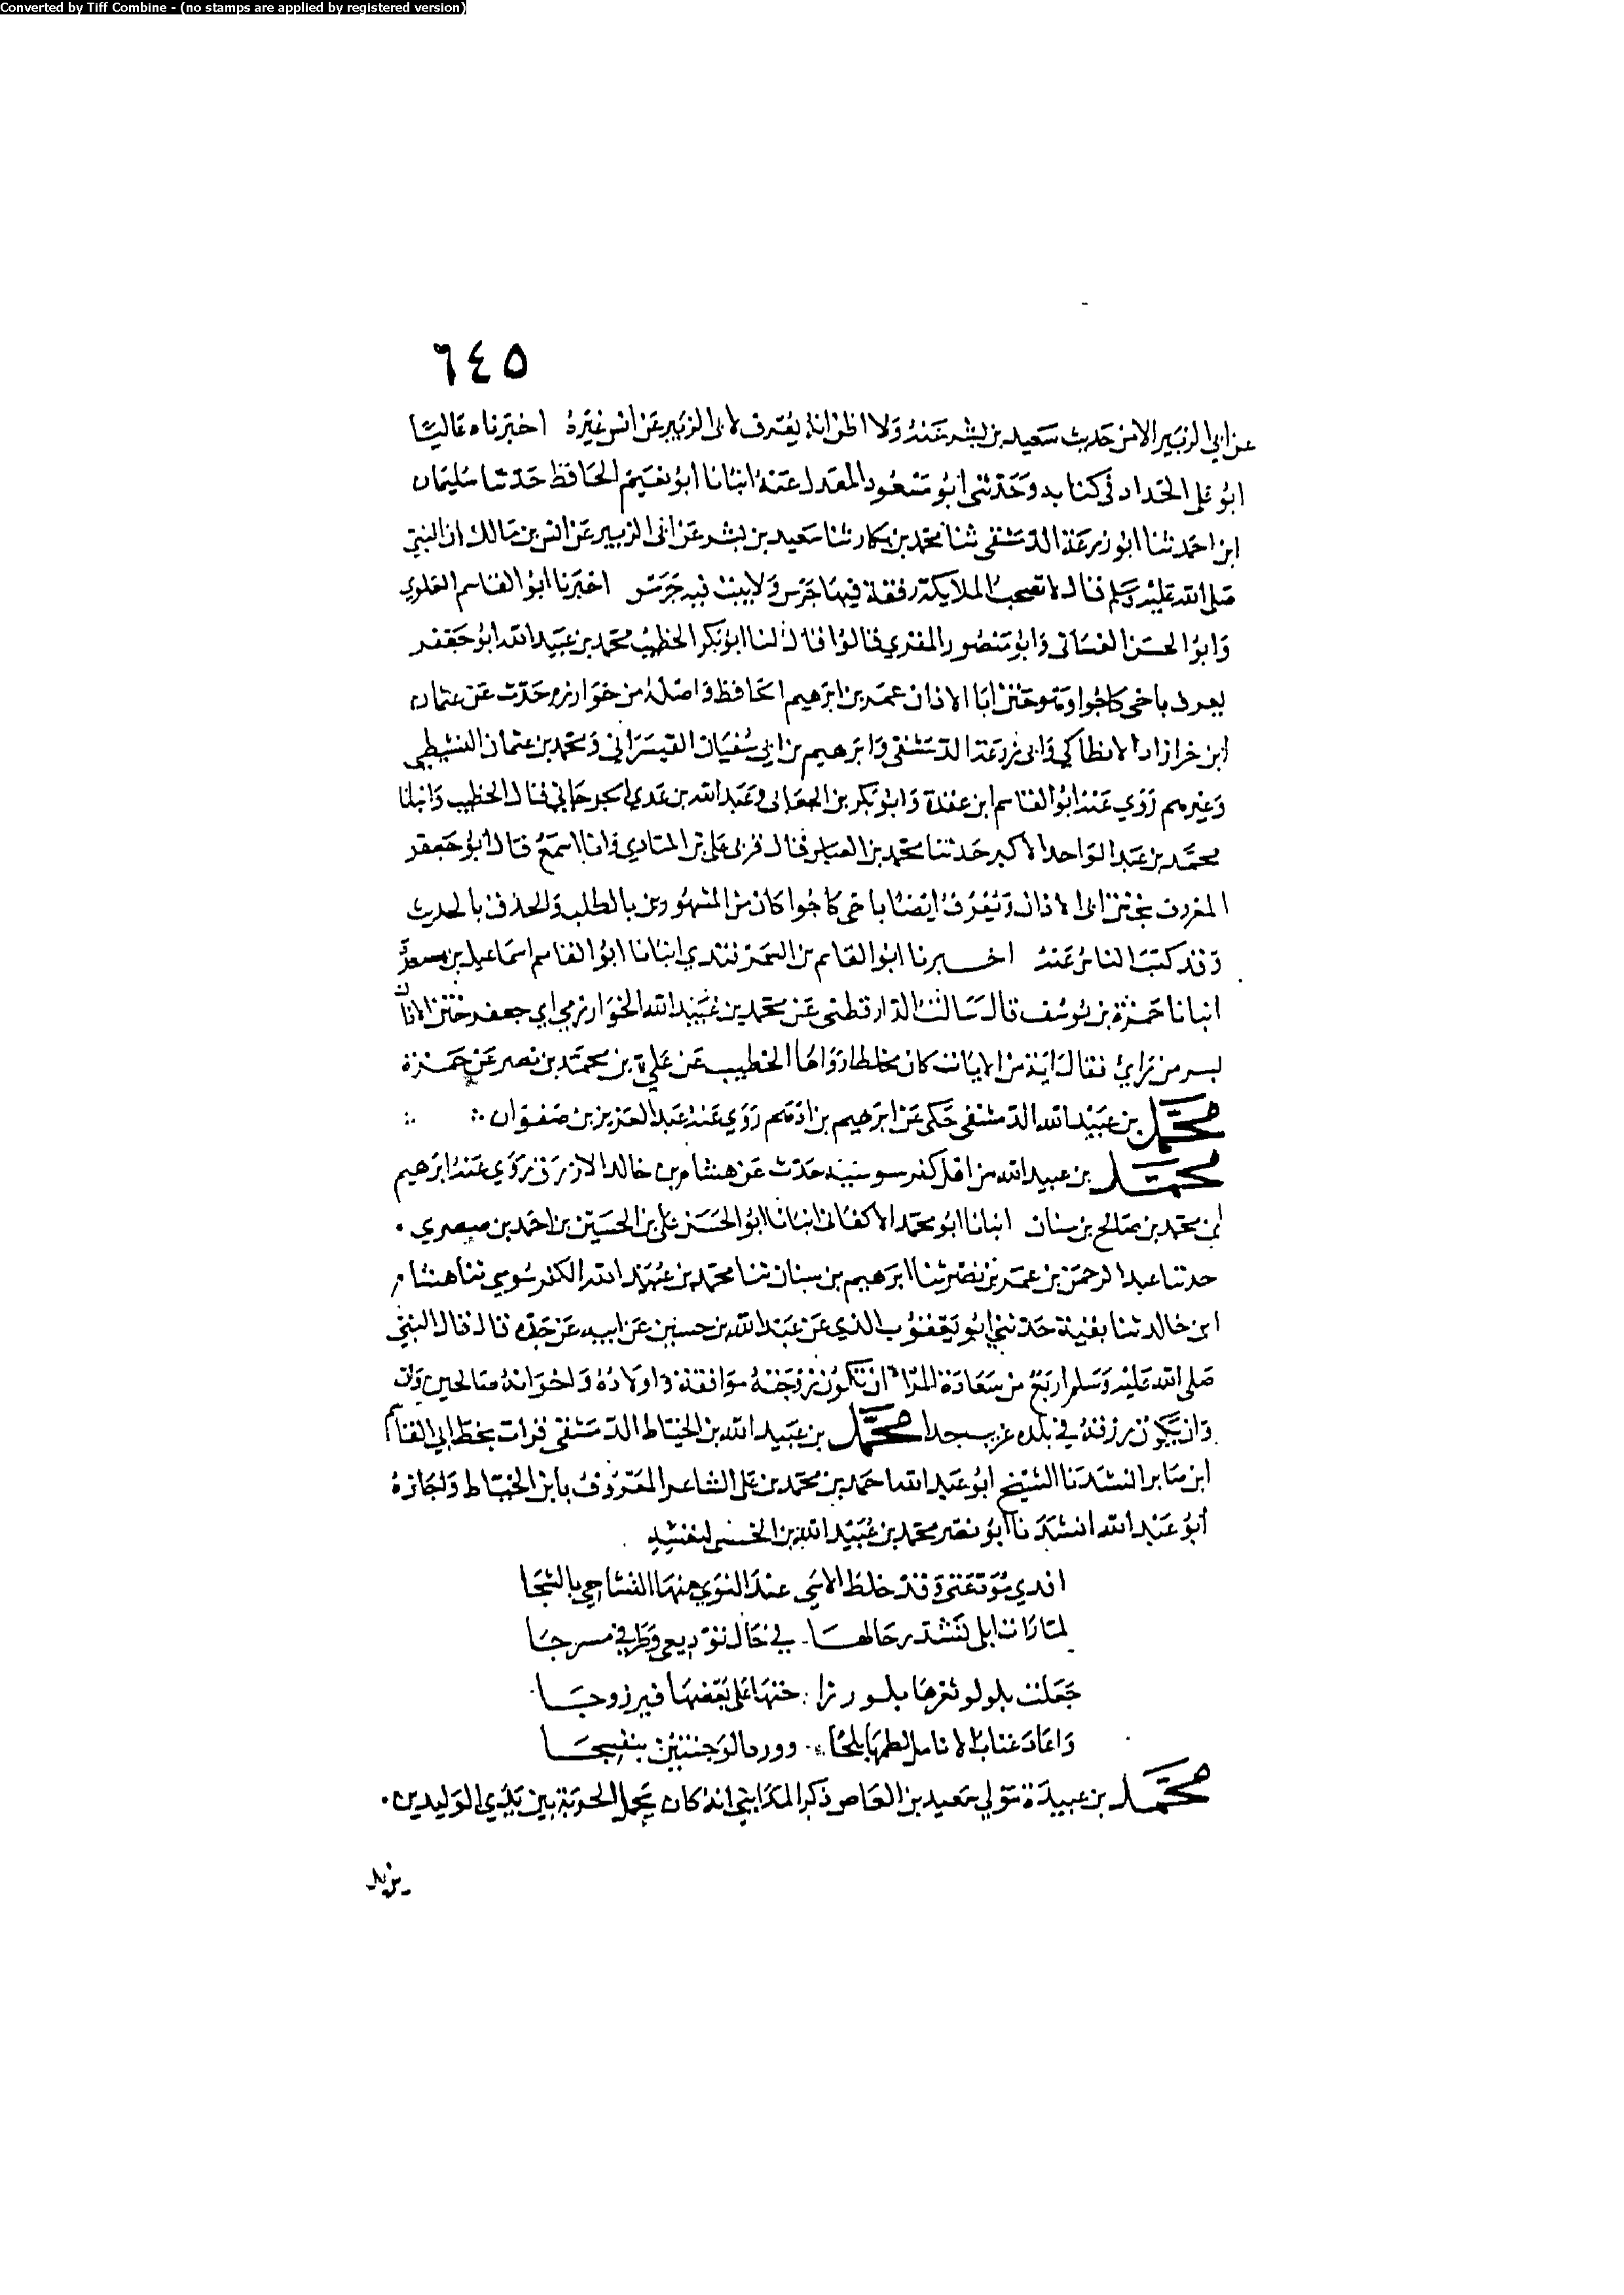 Converted by Tiff Combine - (no stamps are applied by registered version)
٦٤٥
عن ابي الزبير الا من حديث سعيد بن بشير عنه ولا اظن انه يعرف لابي الزبير عن انس غيره اخبرناه عاليا
ابو علي الحداد في كتابه وحدثني ابو مسعود المعدل عنه انبانا ابو نعيم الحافظ حدثنا سليمان
ابن احمد ثنا ابو زرعة الدمشقي ثنا محمد بن بكار ثنا سعيد بن بشير عن ابي الزبير عن انس بن مالك ان النبي
صلى الله عليه وسلم قال لا تصحب الملايكة رفقة فيها جرس ولا بيت فيه جرس اخبرنا ابو القاسم العلوي
وابو الحسن الغساني وابو منصور المقري قالوا قال لنا ابو بكر الخطيب محمد بن عبيد الله ابو جعفر
يعرف باخي كاجوا وهو ختن ابا الاذان عمر بن ابرهيم الحافظ واصله من خوارزم حدث عن عثمان
ابن خرزاد الانطاكي وابي زرعة الدمشقي وابرهيم بن ابي سفيان القيسراني ومحمد بن عثمان النشيطي
وغيرهم روي عنه ابو القاسم ابن عقدة وابو بكر بن الجعابي وعبد الله بن عدي الجرجاني قال الخطيب وانبانا
محمد بن عبد الواحد الاكبر حدثنا محمد بن العباس قال قري على بن المنادي وانا اسمع قال ابو جعفر
المعروف بختن ابي الاذان ويعرف ايضا باخي كاجوا كان من المشهورين بالطلب والحذق بالحديث
وقد كتب الناس عنه اخبرنا ابو القاسم بن السمرقندي انبانا ابو القاسم اسماعيل بن مسعدة
انبانا حمزة بن يوسف قال سالت الدارقطني عن محمد بن عبيد الله الخوارزمي ابي جعفر ختن الاذان
بسر من راي فقال اية من الايات كان مخلطا رواها الخطيب عن علي بن محمد بن نصر عن حمزة
محمد بن عبيد الله الدمشقي حكى عن ابرهيم بن ادهم روي عنه عبد العزيز بن صفوان
محمد بن عبيد الله من اهل كفرسوسية حدث عن هشام بن خالد الازرق روي عنه ابرهيم
ابن محمد بن صالح بن سنان انبانا ابو محمد الاكفاني انبانا ابو الحسن علي بن الحسين بن احمد بن صصري
حدثنا عبد الرحمن بن عمر بن نصر ثنا ابرهيم بن سنان ثنا محمد بن عبيد الله الكفرسوسي ثنا هشام
ابن خالد ثنا بقية حدثني ابو يعقوب الذي عن عبد الله بن حسين عن ابيه عن جده قال قال النبي
صلى الله عليه وسلم اربع من سعادة المرء ان تكون زوجته موافقة واولاده واخوانه صالحين
وان يكون رزقه في بلده غريب جدا محمد بن عبيد الله بن الخياط الدمشقي قرات بخط ابي القاسم
ابن صابر انشدنا الشيخ ابو عبد الله احمد بن محمد بن علي الشاعر المعروف بابن الخياط واجازه
ابو عبد الله انشدنا ابو نصر محمد بن عبيد الله بن لنفسه
افدي مودعتي وقد خلط الاسى عند النوى منها بالشجا
لما رات ابلي تشد رحالها في حال توديعي وطرفي مسرجا
جعلت بلولو ثغرها بلورا على بعضها فيروزجا
واعاد عناب الانامل لطمها وورد الوجنتين بنفسجا
محمد بن عبيدة مولي سعيد بن العاص ذكر المدايني انه كان يحمل الحربة بين يدي الوليد بن
يزيد